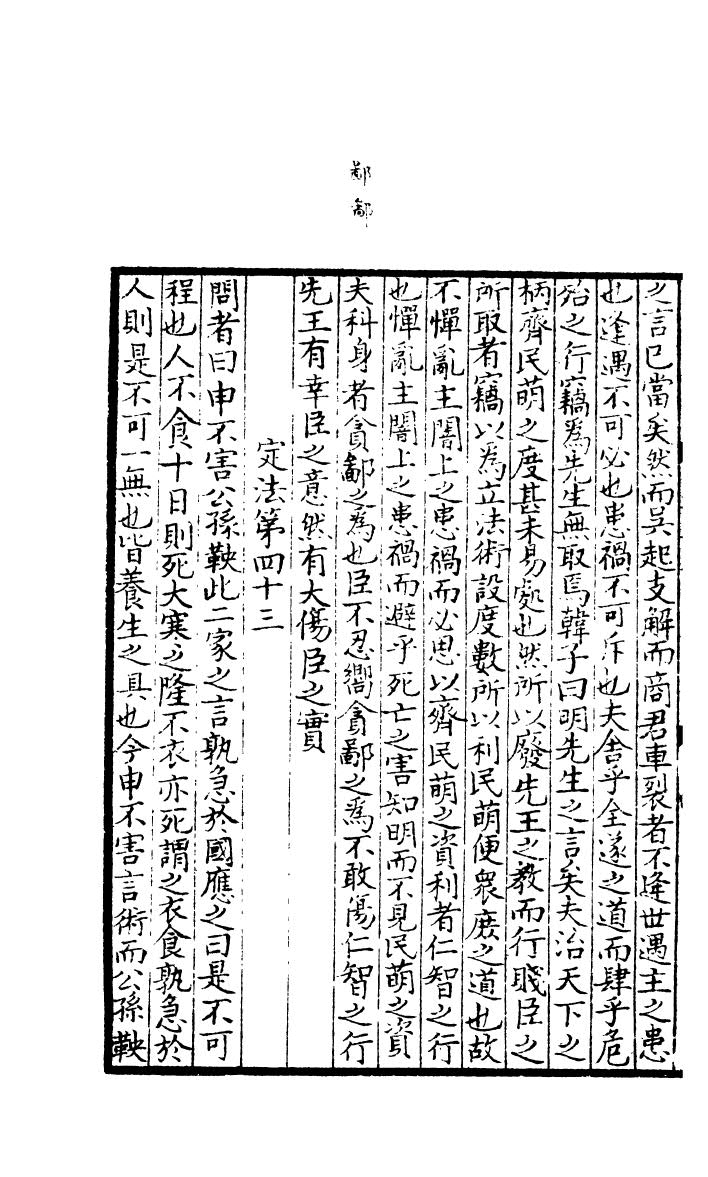 鄙
鄙
之言已當矣然而吳起支解而商君車裂者不逢世遇主之患
也逢遇不可必也患禍不可斥也夫舍乎全遂之道而肆乎危
殆之行竊為先生無取焉韓子曰明先生之言矣夫治天下之
柄齊民萌之度甚未易處也然所以廢先王之教而行賤臣之
所取者竊以為立法術設度數所以利民萌便衆庻之道也故
不憚亂主闇上之患禍而必思以齊民萌之資利者仁智之行
也憚亂主闇上之患禍而避乎死亡之害知明而不見民萌之資
夫科身者貪鄙之為也臣不忍嚮貪鄙之為不敢傷仁智之行
先王有幸臣之意然有大傷臣之實
定法第四十三
問者曰申不害公孫鞅此二家之言孰急於國應之曰是不可
程也人不食十日則死大寒之隆不衣亦死謂之衣食孰急於
人則是不可一無也皆養生之具也今申不害言術而公孫鞅